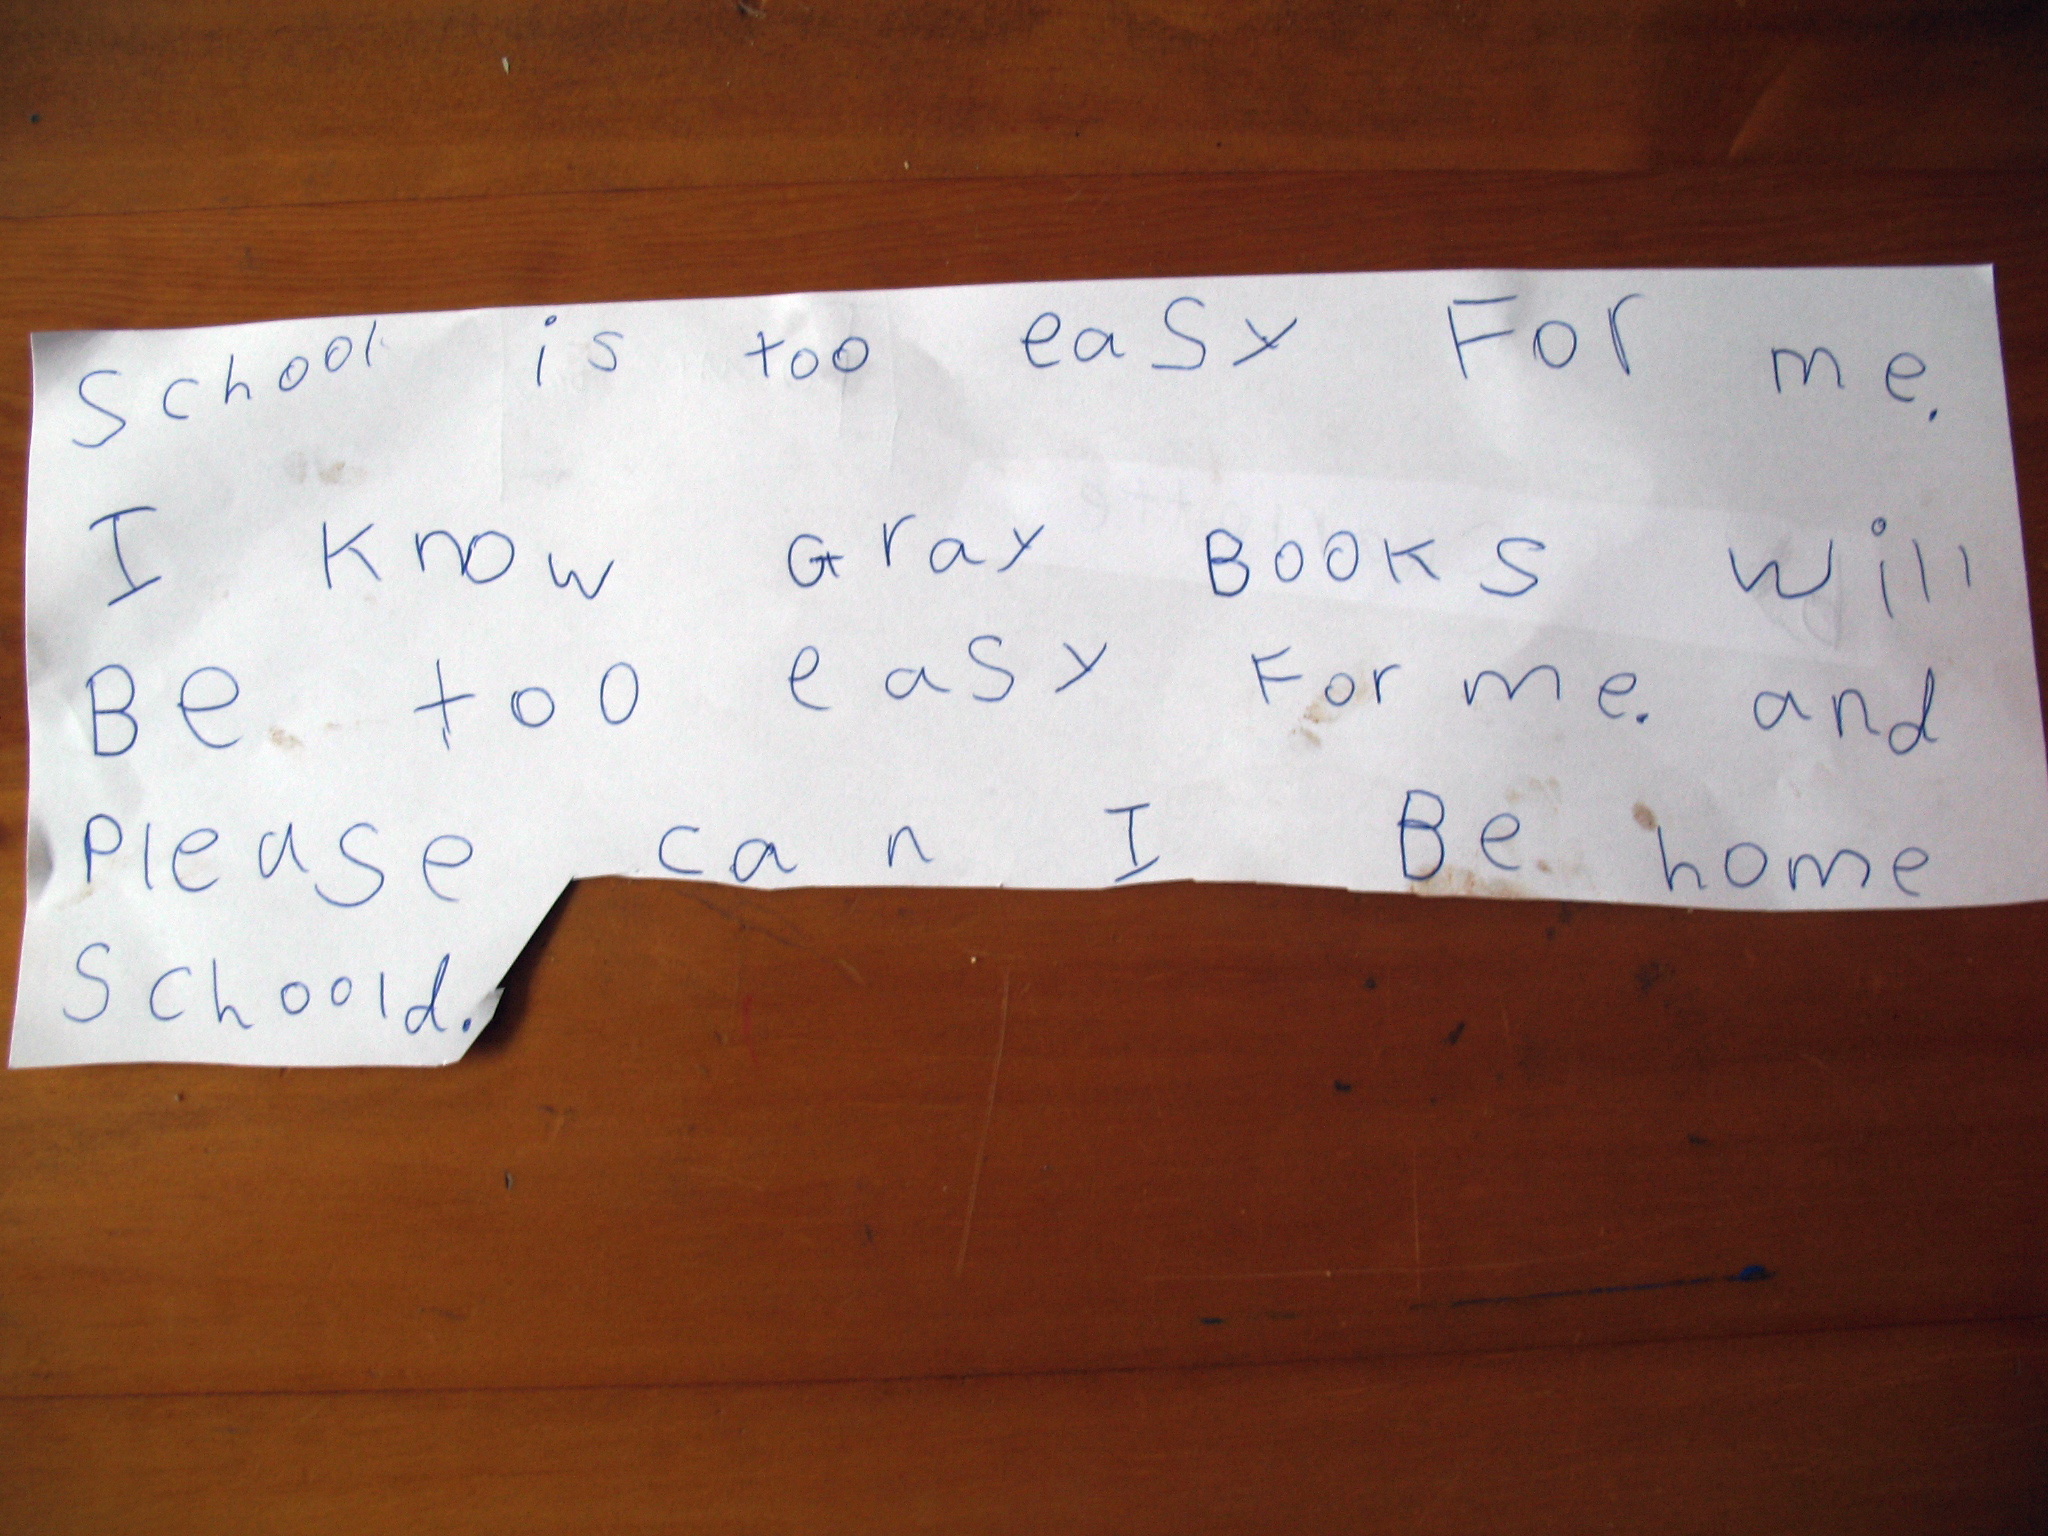 School is too easy For me.
I know Gray BOOKS will
Be too easy For me. and
Please can I Be home
Schoold.